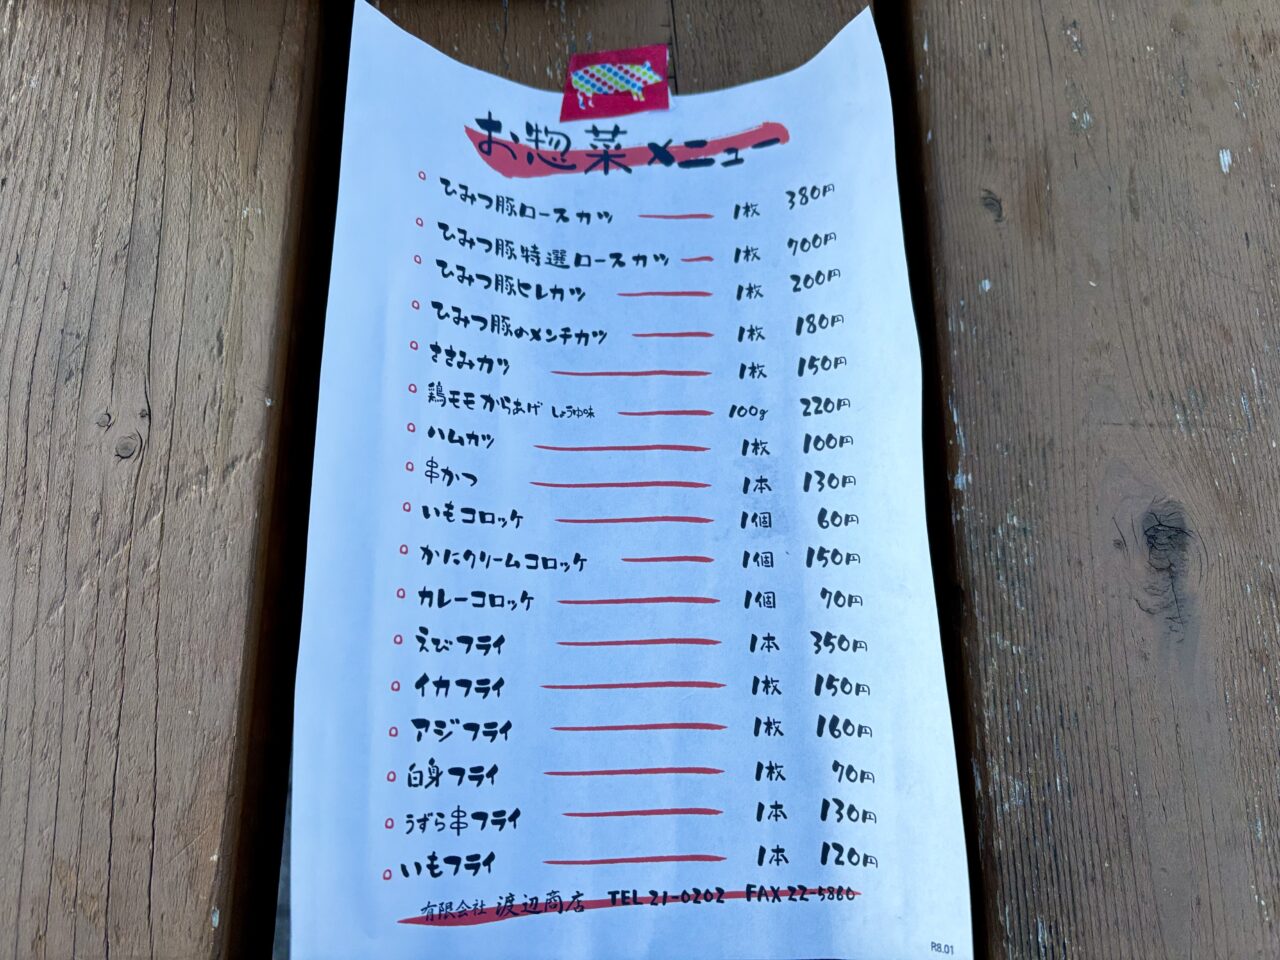 お惣菜メニュー
ひみつ豚ロースカツ 1枚 380円
ひみつ豚特選ロースカツ 1枚 700円
ひみつ豚ヒレカツ 1枚 200円
ひみつ豚のメンチカツ 1枚 180円
ささみカツ 1枚 150円
鶏モモからあげ しょうゆ味 100g 220円
ハムカツ 1枚 100円
串かつ 1本 130円
いもコロッケ 1個 60円
かにクリームコロッケ 1個 150円
カレーコロッケ 1個 70円
えびフライ 1本 350円
イカフライ 1枚 150円
アジフライ 1枚 160円
白身フライ 1枚 70円
うずら串フライ 1本 130円
いもフライ 1本 120円
有限会社 渡辺商店 TEL 21-0202 FAX 22-5860
R8.01